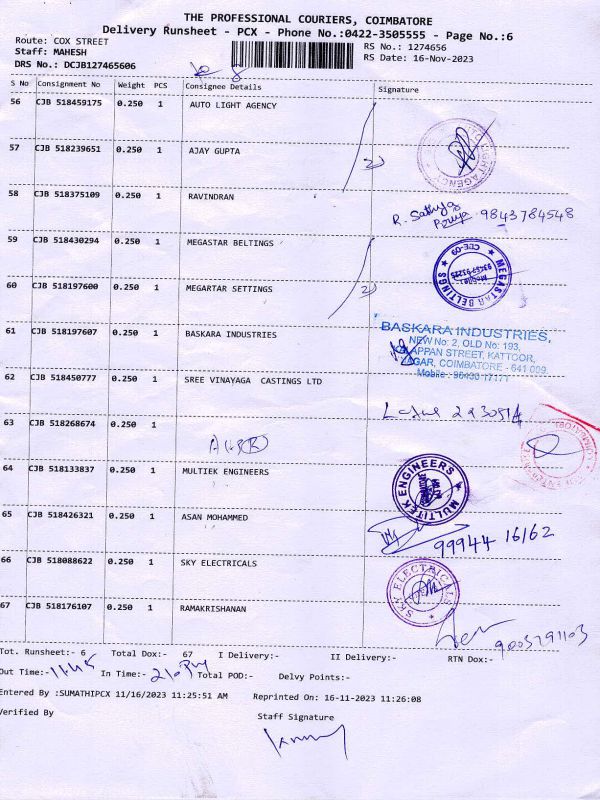 THE PROFESSIONAL COURIERS, COIMBATORE
Delivery Runsheet - PCX - Phone No.:0422-3505555 - Page No.:6
Route: COX STREET
RS No.: 1274656
Staff: MAHESH
RS Date: 16-Nov-2023
DRS No.: DCJB127465606
S No Consignment No Weight PCS Consignee Details Signature
56 CJB 518459175 0.250 1 AUTO LIGHT AGENCY
57 CJB 518239651 0.250 1 AJAY GUPTA
58 CJB 518375109 0.250 1 RAVINDRAN
R. Sathya Priya 9843784548
59 CJB 518430294 0.250 1 MEGASTAR BELTINGS
MEGASTAR BELTINGS CBE-09
60 CJB 518197600 0.250 1 MEGARTAR SETTINGS
61 CJB 518197607 0.250 1 BASKARA INDUSTRIES
BASKARA INDUSTRIES,
NEW No: 2, OLD No: 193,
APPAN STREET, KATTOOR,
AGAR, COIMBATORE - 641 009.
Mobile : 98430 17171
62 CJB 518450777 0.250 1 SREE VINAYAGA CASTINGS LTD
63 CJB 518268674 0.250 1
64 CJB 518133837 0.250 1 MULTIEK ENGINEERS
MULTITEK ENGINEERS
65 CJB 518426321 0.250 1 ASAN MOHAMMED
99944 16162
66 CJB 518088622 0.250 1 SKY ELECTRICALS
SKY ELECTRICALS
67 CJB 518176107 0.250 1 RAMAKRISHANAN
9003291103
Tot. Runsheet:- 6 Total Dox:- 67 I Delivery:- II Delivery:- RTN Dox:-
Out Time:- 11.45 In Time:- Total POD:- Delvy Points:-
Entered By :SUMATHIPCX 11/16/2023 11:25:51 AM Reprinted On: 16-11-2023 11:26:08
Verified By
Staff Signature